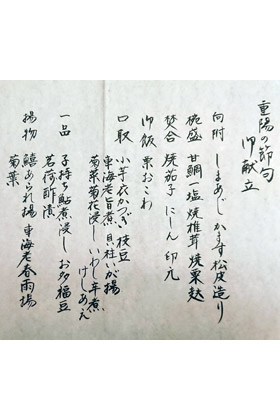 重陽の節句
御献立
向附 しまあじ かます松皮造り
椀盛 甘鯛一塩 焼椎茸 焼栗麸
焚合 焼茄子 にしん 印元
御飯 栗おこわ
口取 小芋衣かつぎ 枝豆
車海老旨煮 貝柱いが揚
菊菜菊花浸し いわし辛煮
けしあえ
一品 子持ち鮎煮浸し お多福豆
茗荷酢漬
揚物 鱚あられ揚 車海老春雨揚
菊葉